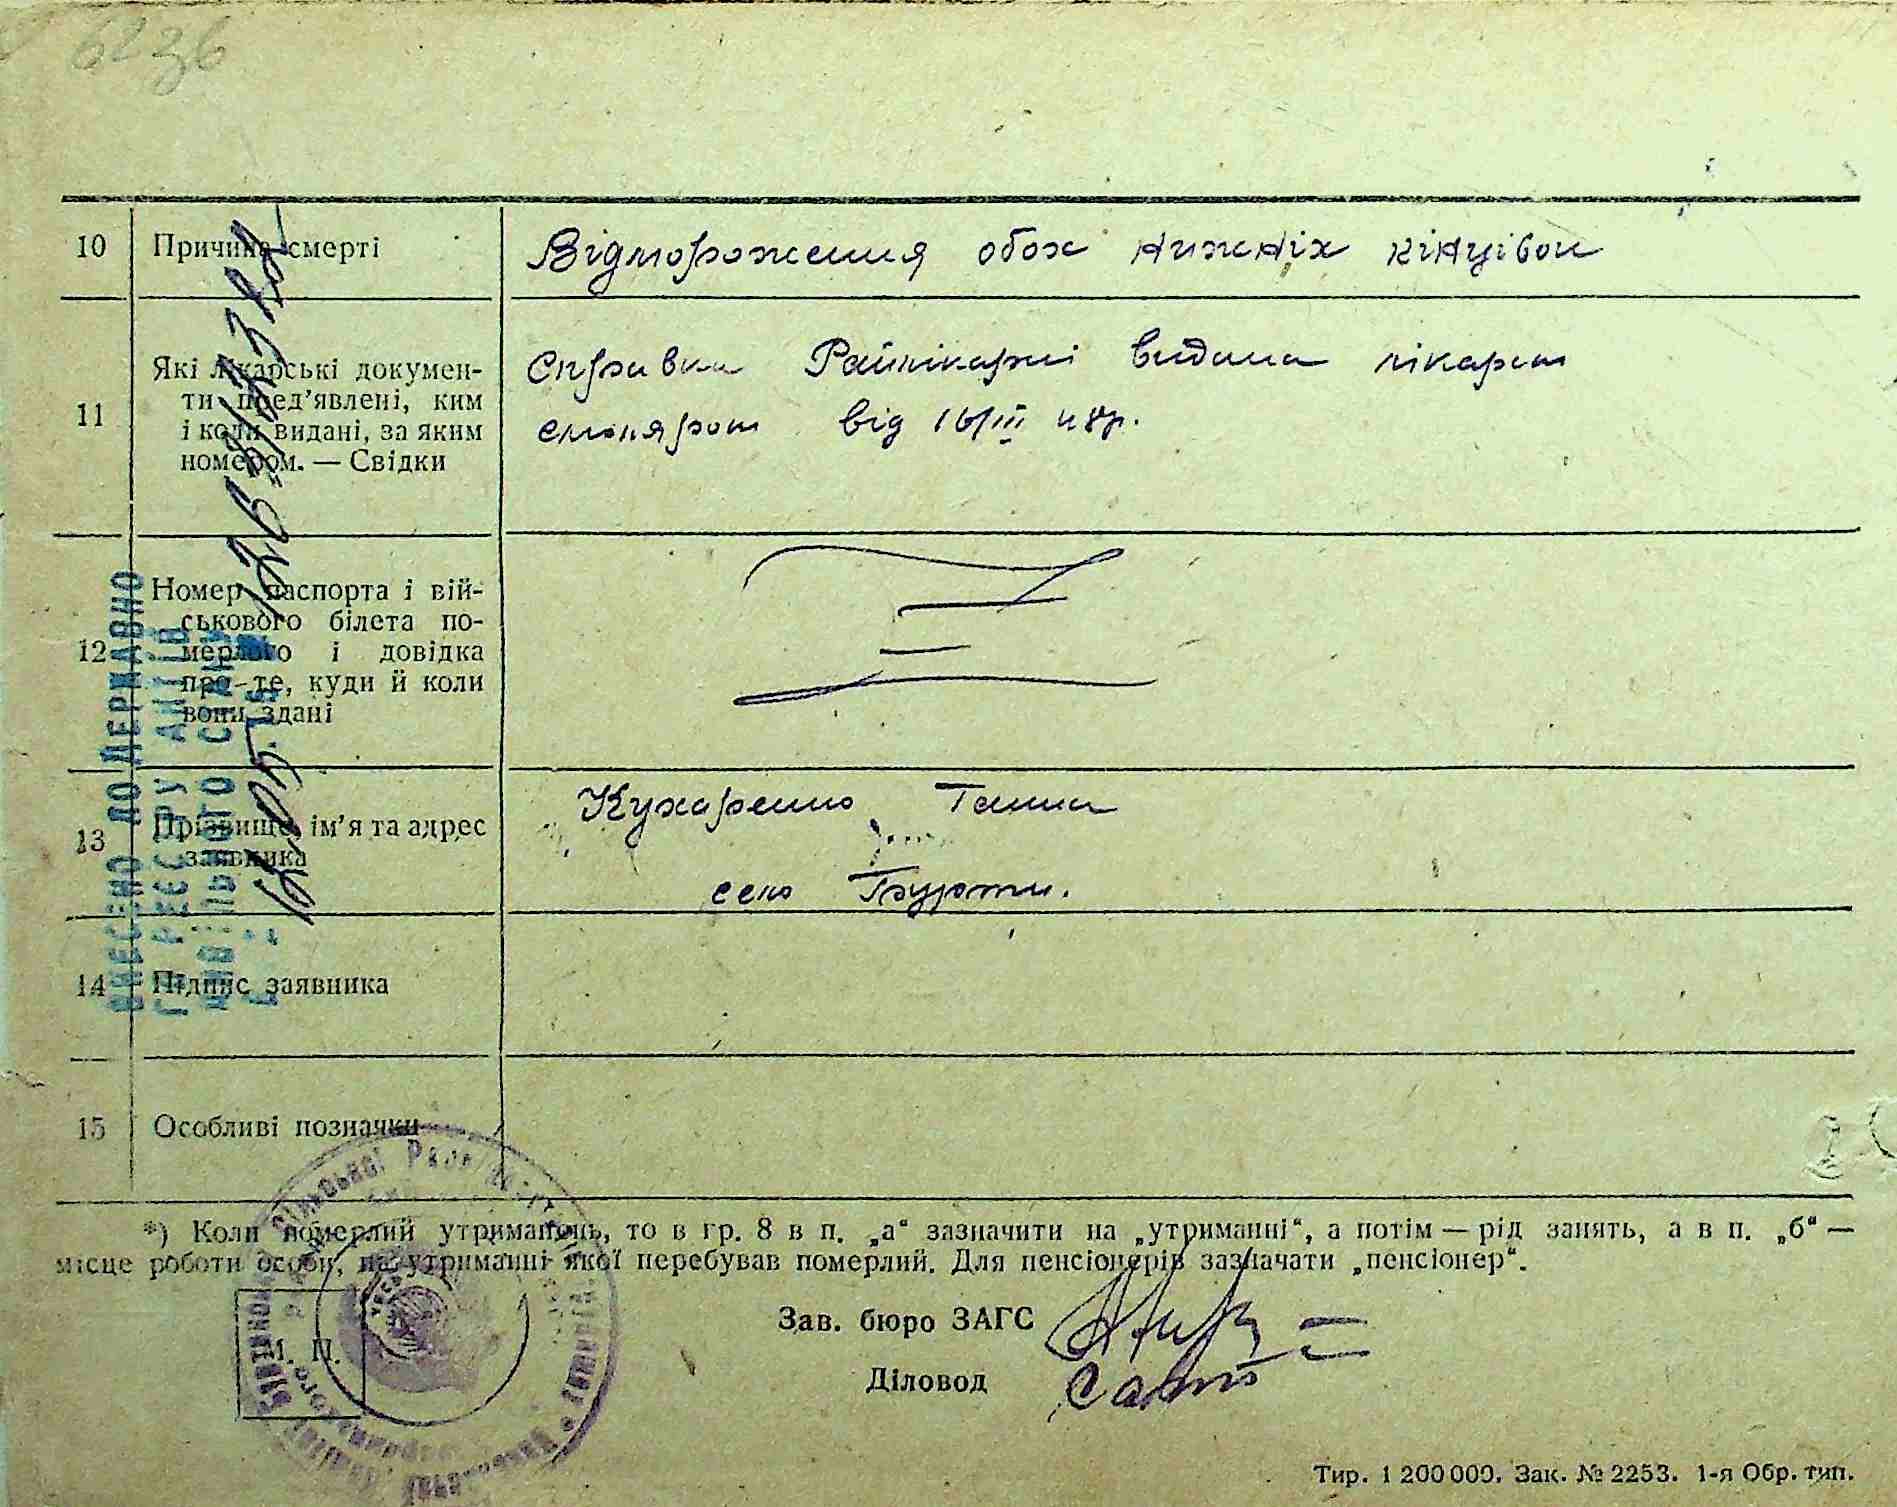 6236
10 Причина смерті Відмороження обох нижніх кінцівок
11 Які лікарські докумен-
ти пред'явлені, ким
і коли видані, за яким
номером. — Свідки
Справка Райлікарні видана лікарем
столяром від 16/III 48р.
12 Номер паспорта і вій-
ськового білета по-
мерлого і довідка
про те, куди й коли
вони здані
13 Прізвище, ім'я та адрес
заявника
Кухаренко Ганна
село Бурти.
14 Підпис заявника
15 Особливі позначки
ВНЕСЕНО ДО ДЕРЖАВНО
ГО РЕЄСТРУ АКТІВ
ЦИВІЛЬНОГО СТАНУ
*) Коли померлий утриманець, то в гр. 8 в п. „а“ зазначити на „утриманні“, а потім — рід занять, а в п. „б“ —
місце роботи особи, на утриманні якої перебував померлий. Для пенсіонерів зазначати „пенсіонер“.
М. П.
Зав. бюро ЗАГС
Діловод
Тир. 1 200 000. Зак. № 2253. 1-я Обр. тип.